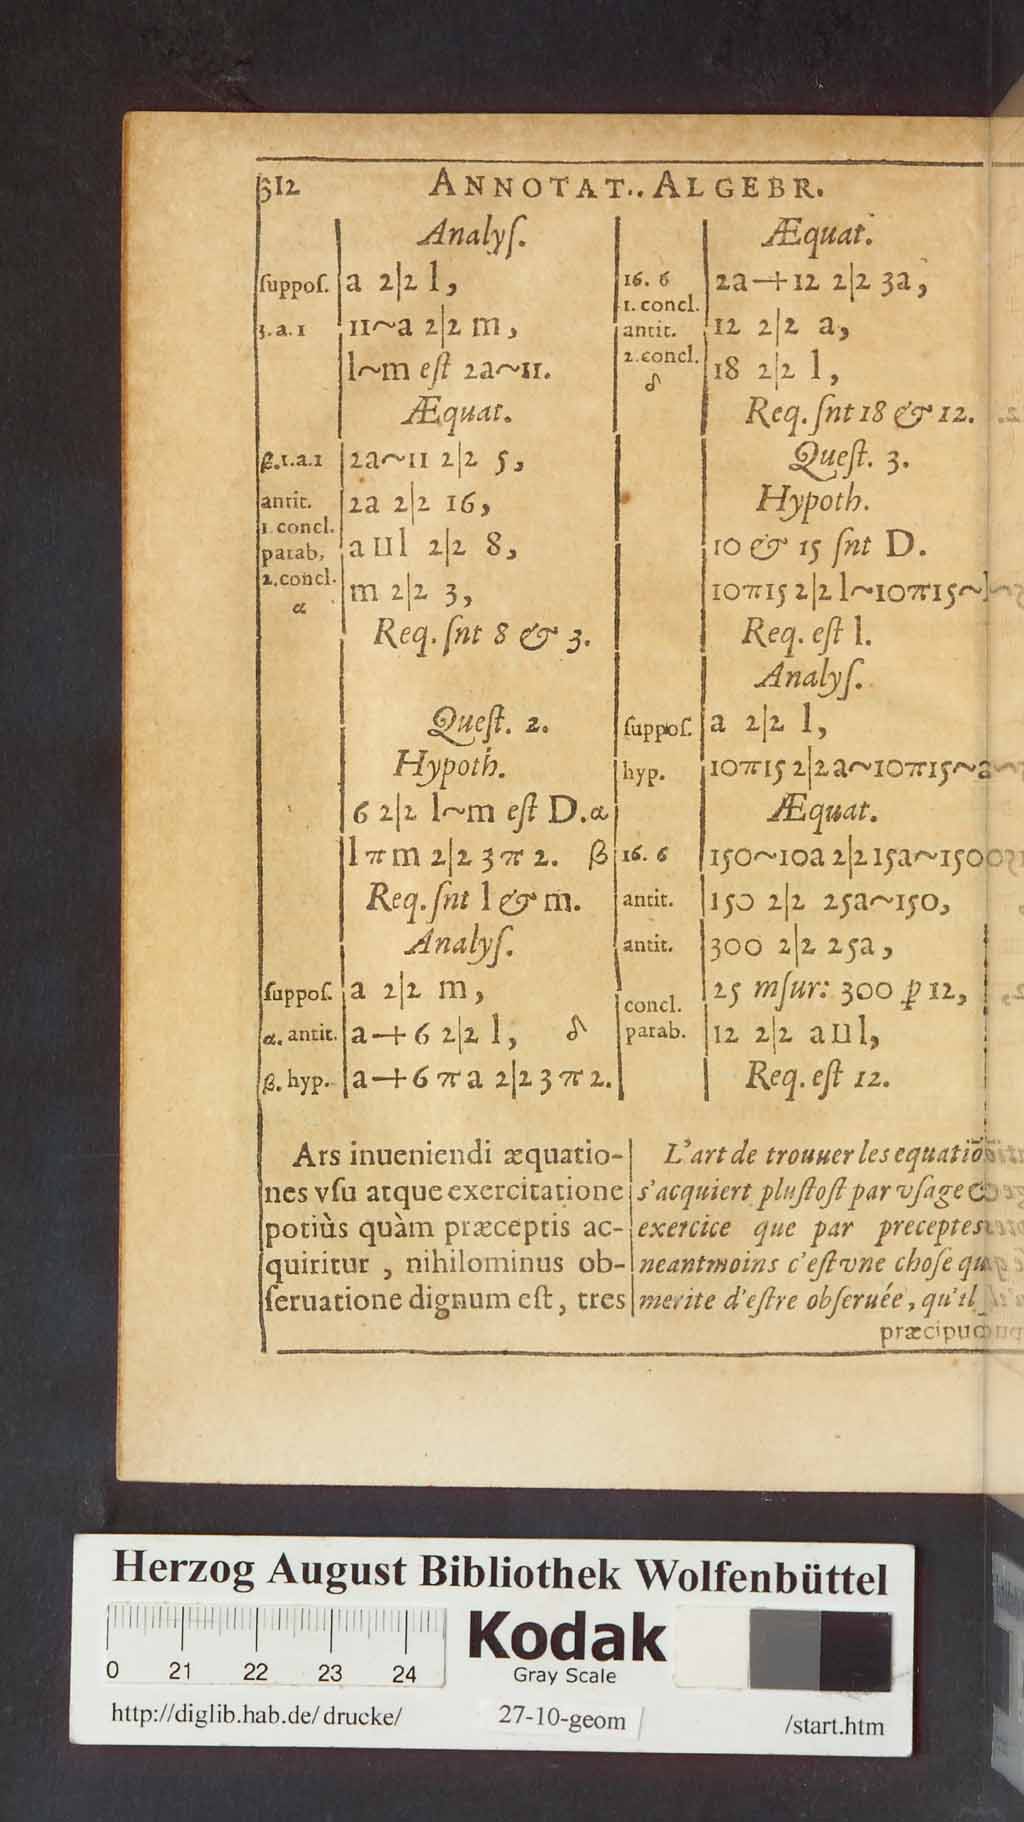 312 ANNOTAT.. ALGEBR.
Analyſ.
ſuppoſ. a 2|2 l,
3.a.1 11~a 2|2 m,
l~m eſt 2a~11.
Æquat.
β.1.a.1 2a~11 2|2 5,
antit. 2a 2|2 16,
1.concl.
parab, a ıııl 2|2 8,
2.concl. m 2|2 3,
α
Req. ſnt 8 & 3.
Queſt. 2.
Hypoth.
6 2|2 l~m eſt D.α
l π m 2|2 3 π 2. β
Req. ſnt l & m.
Analyſ.
ſuppoſ. a 2|2 m,
α. antit. a+6 2|2 l, δ
β. hyp. a+6 π a 2|2 3 π 2.
Æquat.
16. 6 2a+12 2|2 3a,
1. concl.
antit. 12 2|2 a,
2.concl. 18 2|2 l,
δ
Req. ſnt 18 & 12.
Queſt. 3.
Hypoth.
10 & 15 ſnt D.
10π15 2|2 l~10π15~l
Req. eſt l.
Analyſ.
ſuppoſ. a 2|2 l,
hyp. 10π15 2|2 a~10π15~a
Æquat.
16. 6 150~10a 2|2 15a~150
antit. 150 2|2 25a~150,
antit. 300 2|2 25a,
25 mſur: 300 ꝑ 12,
concl.
parab. 12 2|2 a ıııl,
Req. eſt 12.
Ars inueniendi æquatio-
nes vſu atque exercitatione
potiùs quàm præceptis ac-
quiritur , nihilominus ob-
ſeruatione dignum eſt, tres
L'art de trouuer les equatiõ
s'acquiert pluſtoſt par vſage &
exercice que par preceptes
neantmoins c'eſt vne choſe qui
merite d'eſtre obſeruée, qu'il
præcipuæ
Herzog August Bibliothek Wolfenbüttel
0 21 22 23 24
Kodak
Gray Scale
http://diglib.hab.de/drucke/ 27-10-geom /start.htm